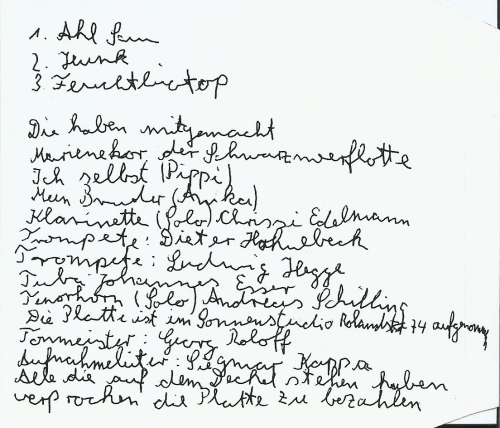 1. Ahl Sau
2. Junk
3 Feuchtbiotop
Die haben mitgemacht
Marienekor der Schwarzmeerflotte
Ich selbst (Pippi)
Mein Bruder (Anika)
Klarinette (Solo) Chrissi Edelmann
Trompete: Dieter Hohnebeck
Trompete: Ludwig Hegge
Tuba Johannes Esser
Tenorhorn (Solo) Andreas Schilling
Die Platte ist im Sonnenstudio Rolandstr 74 aufgenomm
Tonmeister: Georg Roloff
Aufnahmeleiter: Siegmar Kappa
Alle die auf dem Deckel stehen haben
verprochen die Platte zu bezahlen